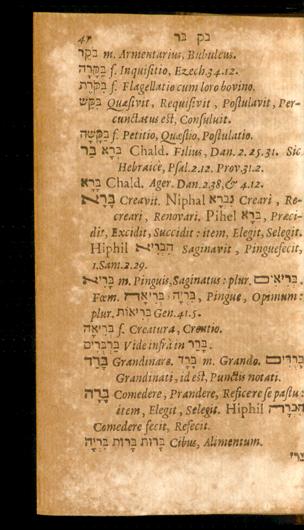 בק בר
בֹּקֵר m. Armentarius, Bubulcus.
בַּקָּרָה f. Inquisitio, Ezech.34.12.
בִּקֹּרֶת f. Flagellatio cum loro bovino.
בִּקֵּשׁ Quæsivit, Requisivit, Postulavit, Per-
cunctatus est, Consuluit.
בַּקָּשָׁה f. Petitio, Quæstio, Postulatio.
בְּרָא בַּר Chald. Filius, Dan.2.25.31. Sic
Hebraicè, Psal.2.12. Prov.31.2.
בָּרָא Chald. Ager. Dan.2.38,& 4.12.
בָּרָא Creavit. Niphal נִבְרָא Creari, Re-
creari, Renovari. Pihel בֵּרֵא, Præci-
dit, Excidit, Succidit: item, Elegit, Selegit.
Hiphil הִבְרִיא Saginavit, Pinguefecit,
1.Sam.2.29.
בָּרִיא m. Pinguis, Saginatus: plur. בְּרִיאִים.
Fœm. בְּרִיאָה, בְּרִיָה, Pingue, Opimum:
plur. בְּרִיאוֹת Gen.41.5.
בְּרִיאָה f. Creatura, Creatio.
בַּרְבֻּרִים Vide infrà in בָּרַר.
בָּרַד Grandinare. בָּרָד m. Grando. בְּרֻדִּים
Grandinati, id est, Punctis notati.
בָּרָה Comedere, Prandere, Reficere se pastu:
item, Elegit, Selegit. Hiphil הִבְרָה
Comedere fecit, Refecit.
בָּרוּת בָּרוֹת בִּרְיָה Cibus, Alimentum.